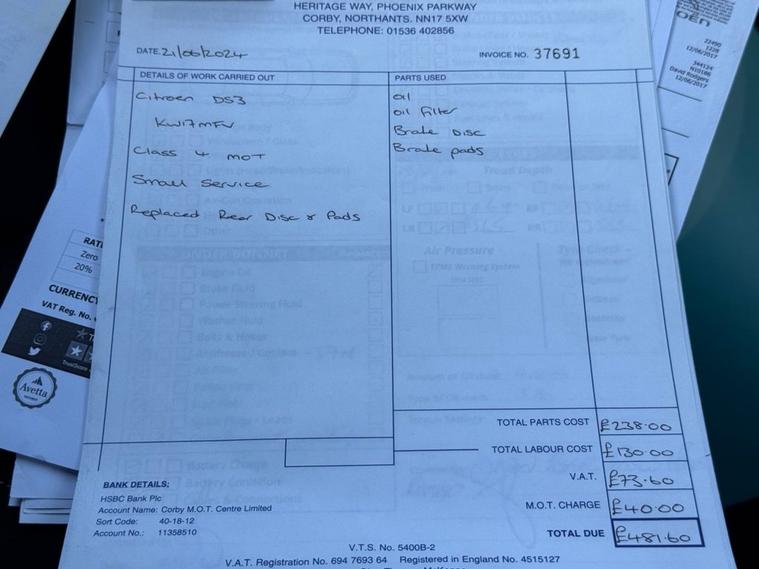 HERITAGE WAY, PHOENIX PARKWAY
CORBY, NORTHANTS. NN17 5XW
TELEPHONE: 01536 402856
DATE 21/06/2024
INVOICE NO. 37691
DETAILS OF WORK CARRIED OUT
PARTS USED
Citroen DS3
KW17MFV
Class 4 MOT
Small Service
Replaced Rear Disc & Pads
oil
oil Filter
Brake Disc
Brake pads
TOTAL PARTS COST £238.00
TOTAL LABOUR COST £130.00
V.A.T. £73.60
M.O.T. CHARGE £40.00
TOTAL DUE £481.60
BANK DETAILS;
HSBC Bank Plc
Account Name: Corby M.O.T. Centre Limited
Sort Code: 40-18-12
Account No.: 11358510
V.T.S. No. 5400B-2
V.A.T. Registration No. 694 7693 64 Registered in England No. 4515127
Zero
20%
CURRENC
VAT Reg. No.
Avetta
22490
1228
12/06/2017
344124
N10186
David Rodgers
12/06/2017
Tread Depth
Air Pressure
TPMS Warning System
Brake Fluid
Power Steering Fluid
Washer Fluid
Battery Charge
Battery Condition